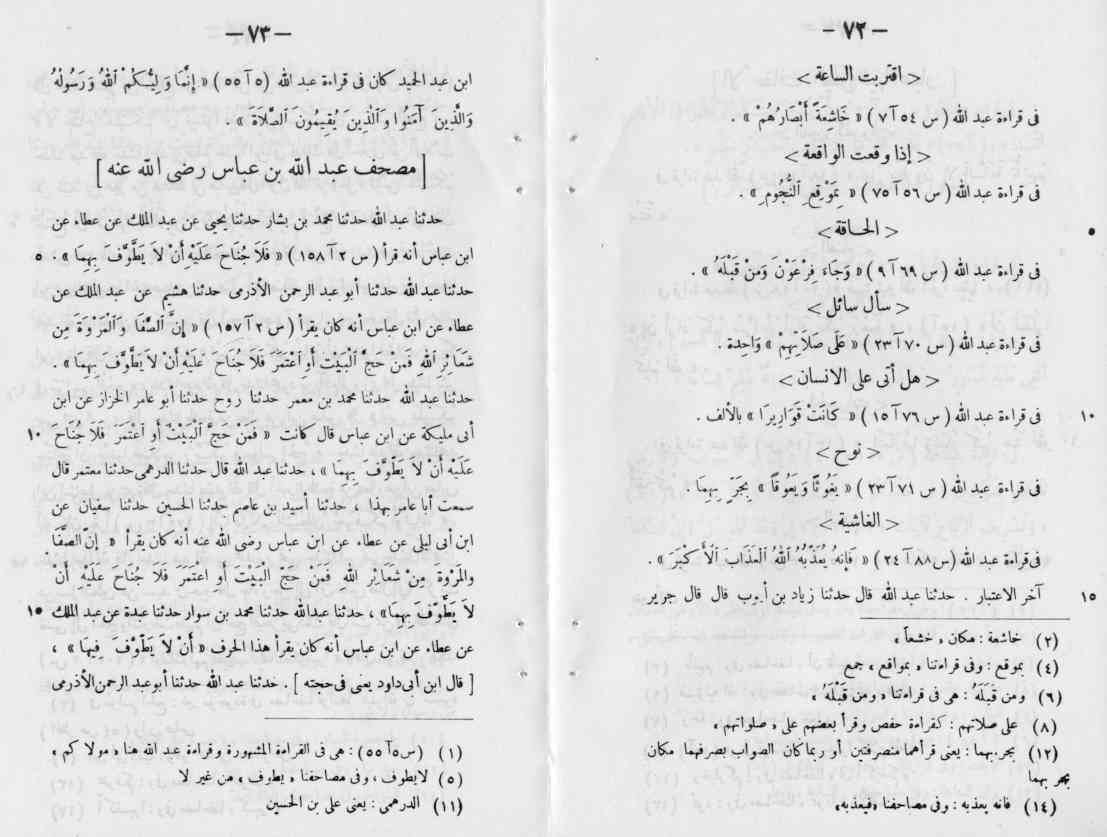 — ٧٢ —
< اقتربت الساعة >
فى قراءة عبد الله ( س ٥٤ آ ٧ ) « خَاشِعَةً أَبْصَارُهُمْ » .
< إذا وقعت الواقعة >
فى قراءة عبد الله ( س ٥٦ آ ٧٥ ) « بِمَوْقِعِ ٱلنُّجُومِ » .
< الحاقة >
فى قراءة عبد الله ( س ٦٩ آ ٩ ) « وَجَاءَ فِرْعَوْنَ وَمَنْ قَبْلَهُ » .
< سأل سائل >
فى قراءة عبد الله ( س ٧٠ آ ٢٣ ) « عَلَى صَلَاتِهِمْ » وَاحِدة .
< هل أتى على الانسان >
فى قراءة عبد الله ( س ٧٦ آ ١٥ ) « كَانَتْ قَوَارِيرَا » بالألف . ١٠
< نوح >
فى قراءة عبد الله ( س ٧١ آ ٢٣ ) « يَغُوثًا وَيَعُوقًا » بِجَرِّ بِهِمَا .
< الغاشية >
فى قراءة عبد الله ( س ٨٨ آ ٢٤ ) « فَإِنَّهُ يُعَذِّبُهُ ٱللهُ ٱلْعَذَابَ ٱلْأَكْبَرَ » .
آخر الاعتبار . حدثنا عبد الله قال حدثنا زياد بن أيوب قال قال جرير ١٥
(٢) خاشعة : مكان , خشعاً ,
(٤) بموقع : وفى قراءتنا , بمواقع , جمع
(٦) ومن قبله : هى فى قراءتنا , ومن قبله ,
(٨) على صلاتهم : كقراءة حفص وقرأ بعضهم على , صلواتهم ,
(١٢) بجر بهما : يعنى قرأهما منصرفتين أو ربما كان الصواب بصرفهما مكان
بجر بهما
(١٤) فانه يعذبه : وفى مصاحفنا , فيعذبه ,
— ٧٣ —
ابن عبد الحميد كان فى قراءة عبد الله ( ٥ آ ٥٥ ) « إِنَّمَا وَلِيُّكُمْ ٱللهُ وَرَسُولُهُ
وَالَّذِينَ آمَنُوا وَٱلَّذِينَ يُقِيمُونَ ٱلصَّلَاةَ » .
[ مصحف عبد الله بن عباس رضى الله عنه ]
حدثنا عبد الله حدثنا محمد بن بشار حدثنا يحيى عن عبد الملك عن عطاء عن
ابن عباس أنه قرأ ( س ٢ آ ١٥٨ ) « فَلَا جُنَاحَ عَلَيْهِ أَنْ لَا يَطَّوَّفَ بِهِمَا » . ٥
حدثنا عبد الله حدثنا أبو عبد الرحمن الأذرمى حدثنا هشيم عن عبد الملك عن
عطاء عن ابن عباس أنه كان يقرأ ( س ٢ آ ١٥٧ ) « إِنَّ ٱلصَّفَا وَٱلْمَرْوَةَ مِن
شَعَائِرِ ٱلله فَمَنْ حَجَّ ٱلْبَيْتَ أَو ٱعْتَمَرَ فَلَا جُنَاحَ عَلَيْهِ أَنْ لَا يَطَّوَّفَ بِهِمَا » .
حدثنا عبد الله حدثنا محمد بن معمر حدثنا روح حدثنا أبو عامر الخزاز عن ابن
أبى مليكة عن ابن عباس قال كانت « فَمَنْ حَجَّ ٱلْبَيْتَ أَوِ ٱعْتَمَرَ فَلَا جُنَاحَ ١٠
عَلَيْهِ أَنْ لَا يَطَّوَّفَ بِهِمَا » ، حدثنا عبد الله قال حدثنا الدرهمى حدثنا معتمر قال
سمعت أبا عامر بهذا ، حدثنا أسيد بن عاصم حدثنا الحسين حدثنا سفيان عن
ابن أبى ليلى عن عطاء عن ابن عباس رضى الله عنه أنه كان يقرأ « إِنَّ ٱلصَّفَا
وَالمَرْوَةَ مِنْ شَعَائِرِ ٱلله فَمَنْ حَجَّ ٱلْبَيْتَ أَوِ ٱعْتَمَرَ فَلَا جُنَاحَ عَلَيْهِ أَنْ
لَا يَطَّوَّفَ بِهِمَا » ، حدثنا عبدالله حدثنا محمد بن سوار حدثنا عبدة عن عبد الملك ١٥
عن عطاء عن ابن عباس أنه كان يقرأ هذا الحرف « أَنْ لَا يَطَّوَّفَ فِيهَا » ،
[ قال ابن أبى داود يعنى فى حجته ] . حدثنا عبد الله حدثنا أبو عبد الرحمن الأذرمى
(١) ( س ٥ آ ٥٥ ) : هى فى القراءة المشهورة وقراءة عبد الله هنا , مولا كم ,
(٥) لايطوف , وفى مصاحفنا , يطوف , من غير لا
(١١) الدرهمى : يعنى على بن الحسين